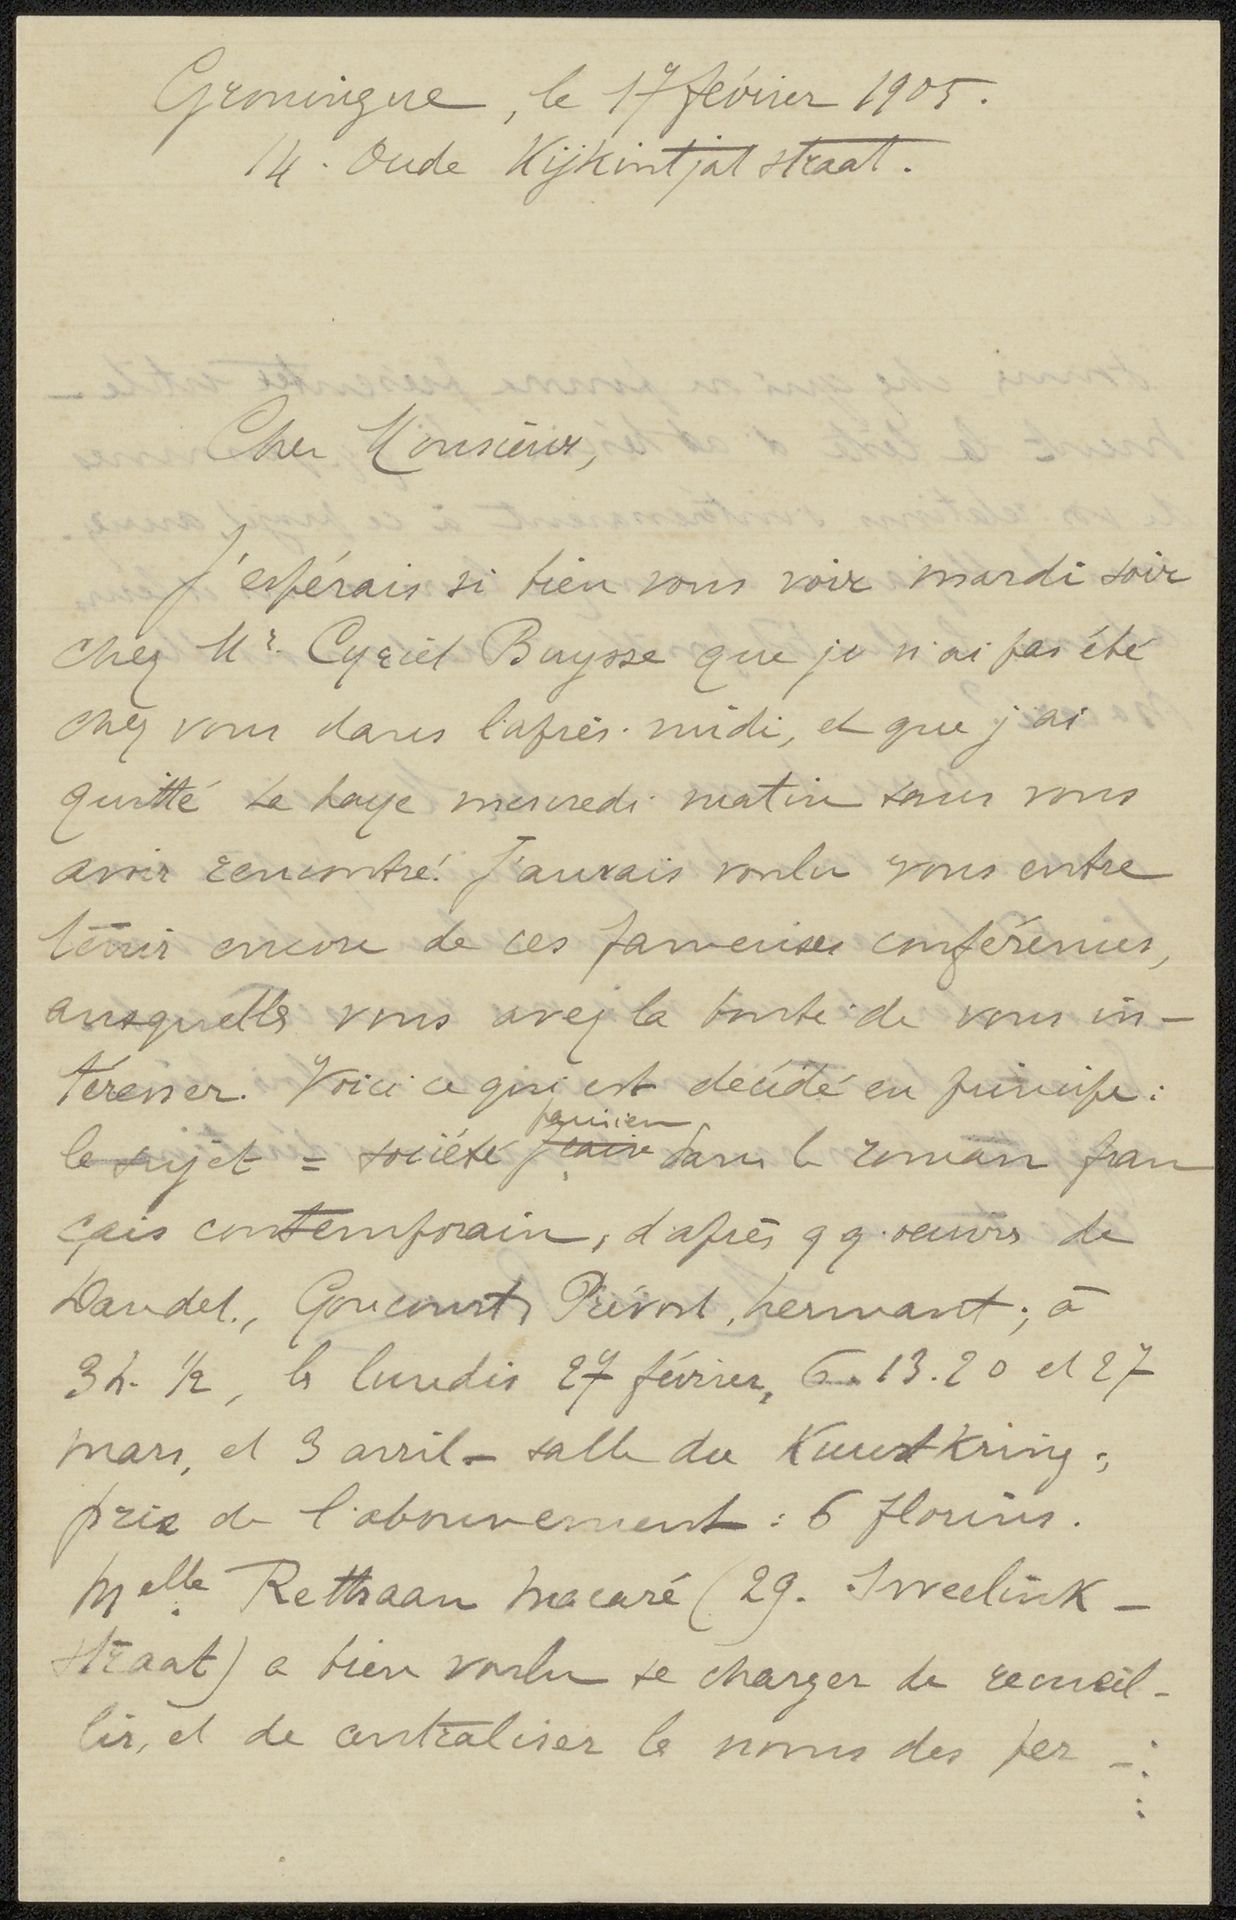 Groningue, le 17 février 1905.
14. Oude Kijkintjat straat.
Cher Monsieur,
J'espérais si bien vous voir mardi soir
chez Mr. Cyriel Buysse que je n'ai pas été
chez vous dans l'après-midi, et que j'ai
quitté La Haye mercredi matin sans vous
avoir rencontré. J'aurais voulu vous entre
tenir encore de ces fameuses conférences,
auxquelles vous avez la bonté de vous in-
téresser. Voici ce qui est décidé en principe :
le sujet = société parisien dans le roman fran
çais contemporain, d'après qq. oeuvres de
Daudet, Goncourt, Prévost, Hermant ; à
3 h. 1/2, les lundis 27 février, 6. 13. 20 et 27
mars, et 3 avril - salle du Kunstkring ;
prix de l'abonnement : 6 florins.
Melle Rethaan Macaré (29. Sweelinck-
straat) a bien voulu se charger de recueil-
lir, et de centraliser les noms des per-